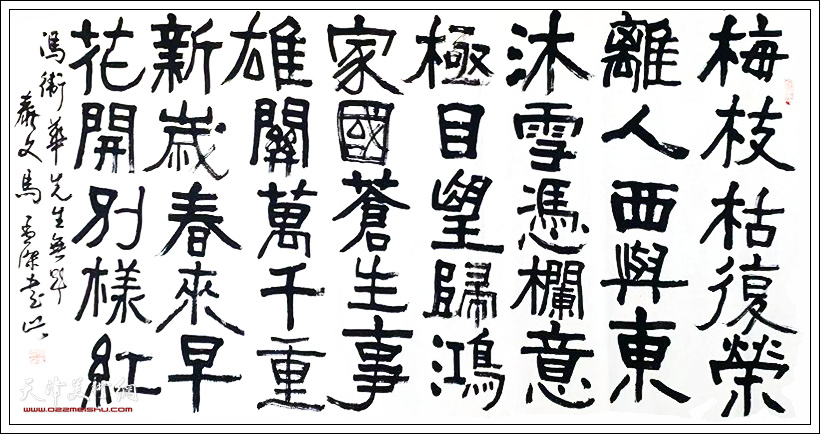 梅枝枯復榮
離人西與東
沐雪憑欄意
極目望歸鴻
家國蒼生事
雄關萬千重
新歲春來早
花開別樣紅
馮衛華先生無
文馬孟傑書
天津美術網
www.022meishu.com